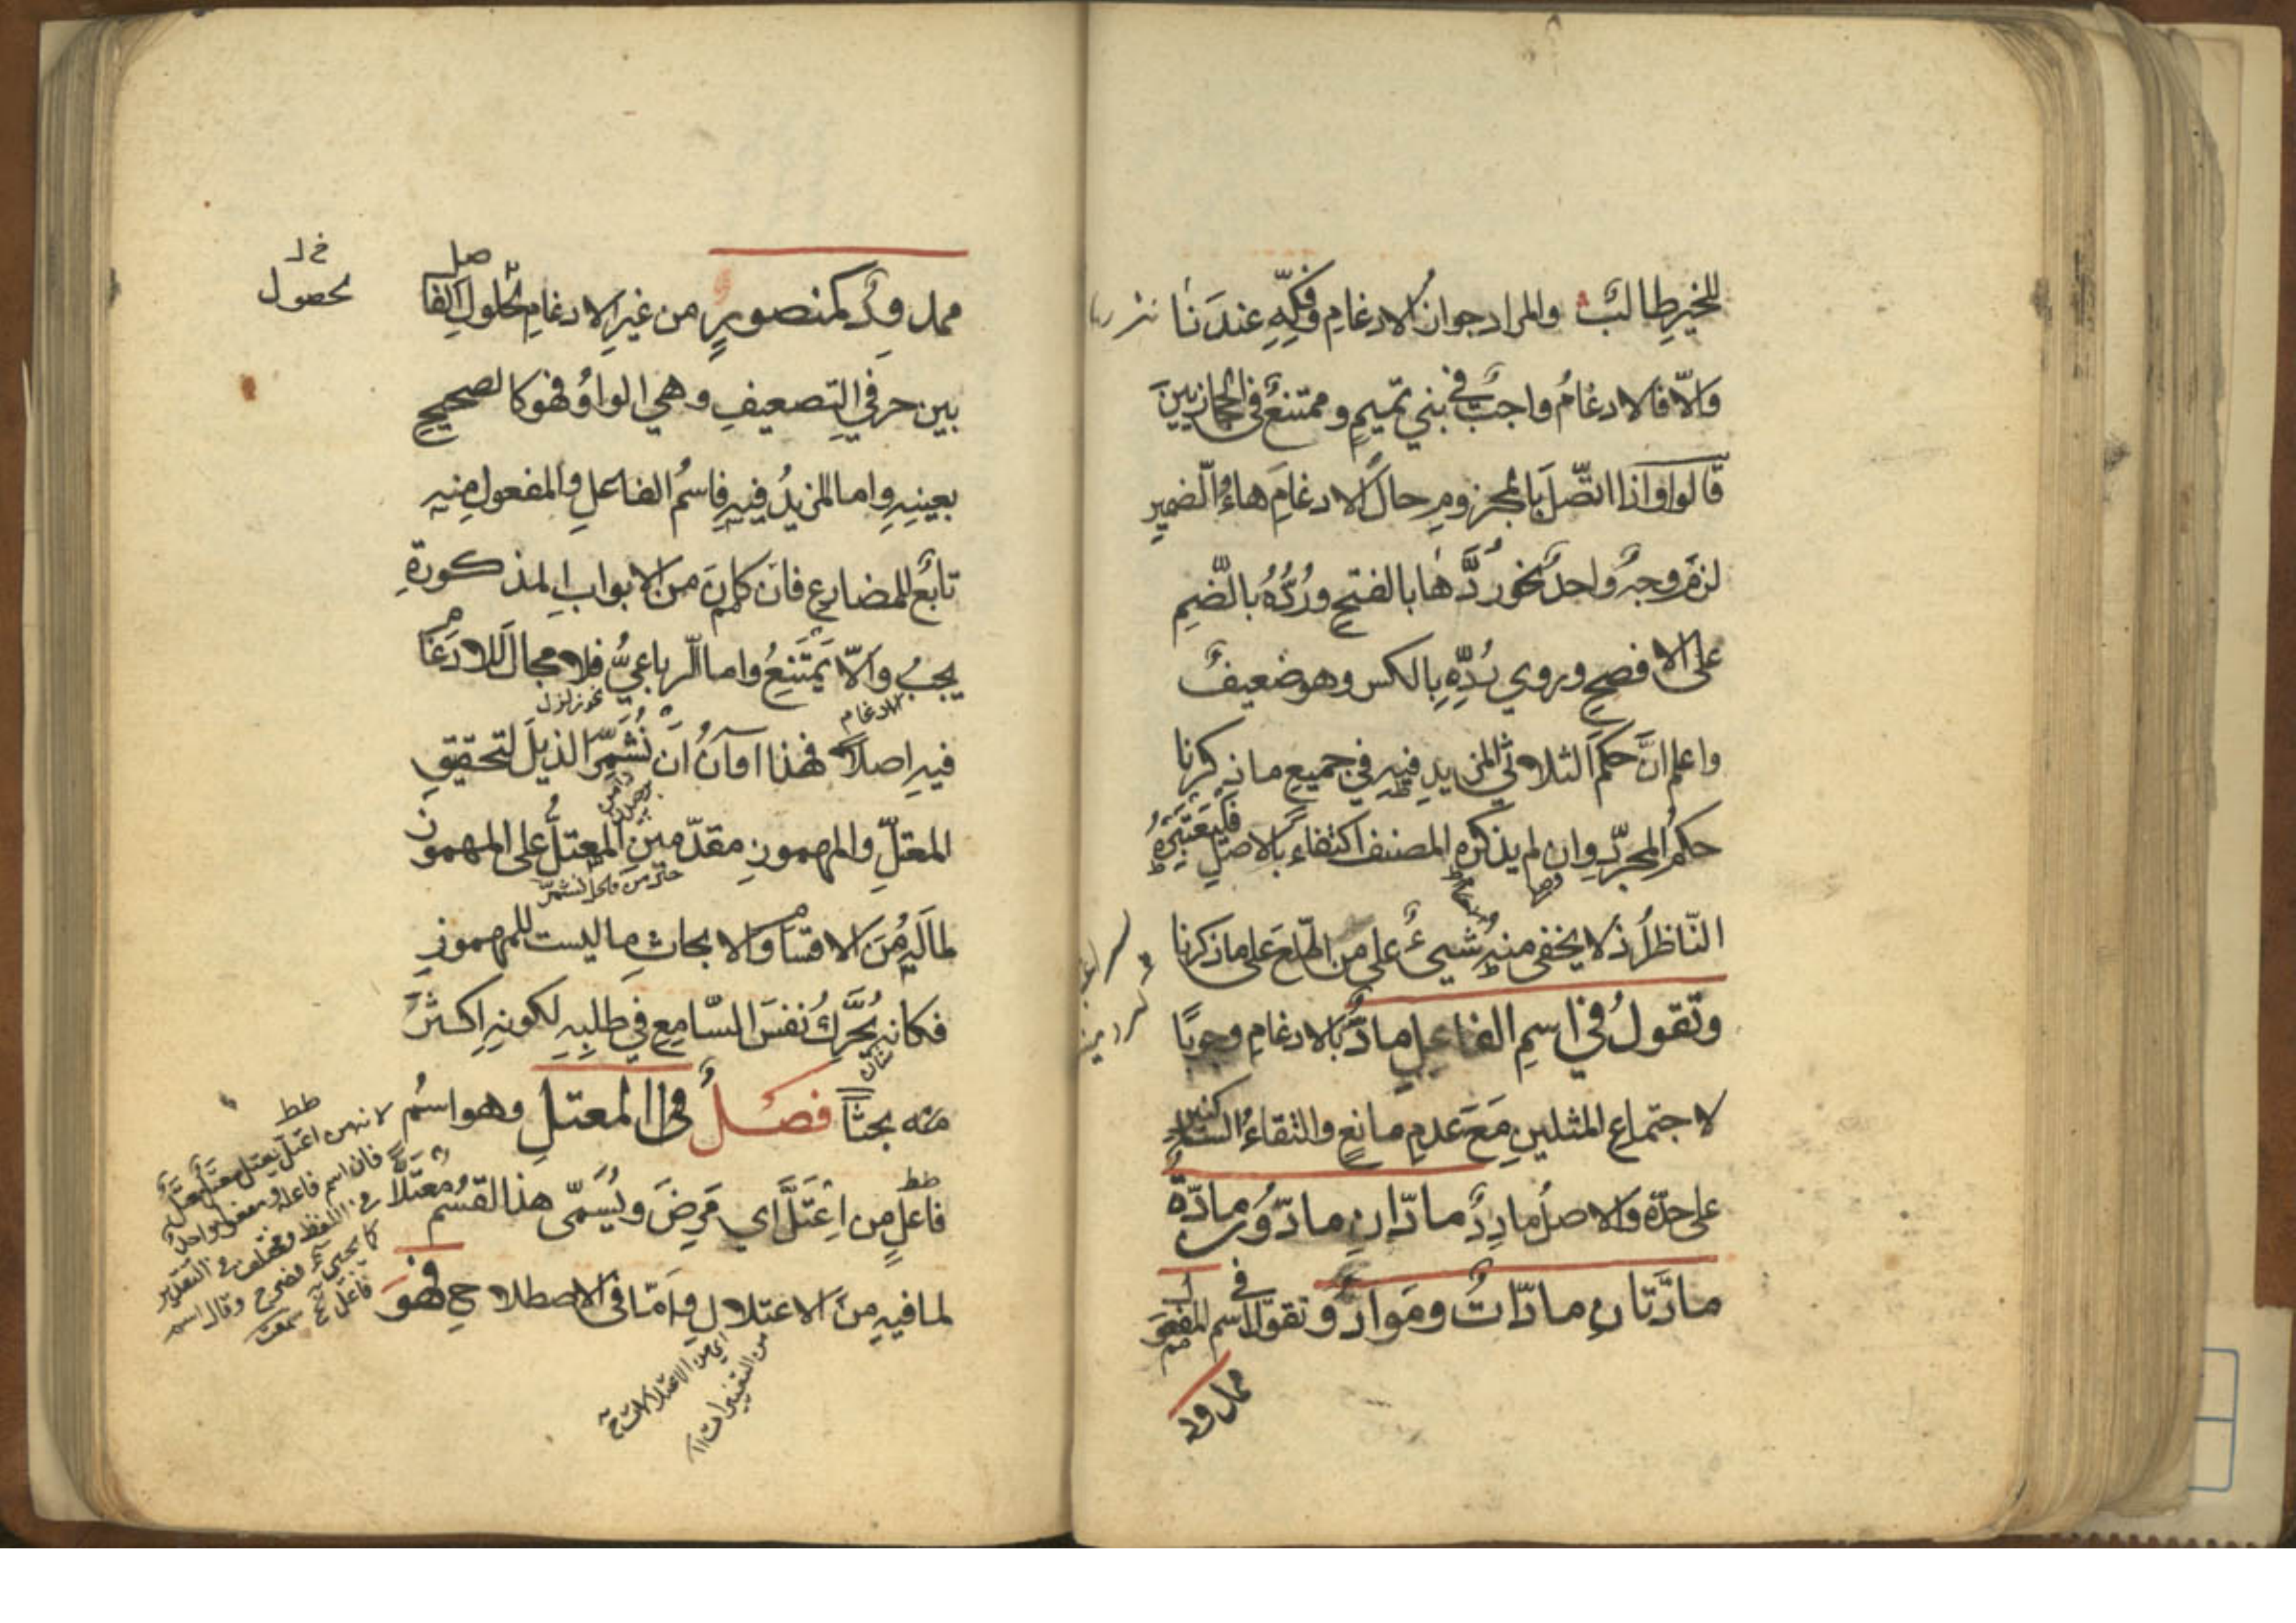 للخير طالب والمراد جواز الادغام وفكه عندنا
والّا فالادغام واجب في بني تميم وممتنع في الحجازيين
قالوا واذا اتّصل بالمجزوم حال الادغام هاء الضمير
لزم وجه واحد نحو ردَّها بالفتح ورُدُّهُ بالضم
على الافصح وروي رُدِّهِ بالكسر وهو ضعيف
واعلم انّ حكم الثلاثي المزيد فيه في جميع ما ذكرنا
حكم المجرّد وان لم يذكره المصنف اكتفاءً بالاصل فليعتبره
النّاظر اذ لا يخفى منه شيئ على من اطّلع على ما ذكرنا
وتقول في اسم الفاعل مادٌّ بالادغام وجوبًا
لاجتماع المثلين مع عدم مانع والتقاء الساكنين
على حدّه والاصل مادِدٌ مادّانِ مادّون مادّة
مادّتان مادّاتٌ وموادّ وتقول في اسم المفعول
ممدود
ممدود كمنصور من غير الادغام لحلول الفاصل
بين حرفي التضعيف وهي الواو فهو كالصحيح
خ ل
لحصول
بعينه واما المزيد فيه فاسم الفاعل والمفعول منه
تابع للمضارع فان كان من الابواب المذكورة
يجب والّا يمتنع واما الرباعيّ فلا مجال للادغام
نحو زلزل
الادغام
فيه اصلًا فهذا اوآن ان نُشَمِّر الذيل لتحقيق
المعتلّ والمهموز مقدّمين المعتلّ على المهموز
لما له من الاقسام والابحاث ما ليست للمهموز
فكانه يُحرّك نفس السّامع في طلبه لكونه اكثر
شان
منه بحثًا فصل في المعتل وهو اسم
فاعل من اعتلَّ اي مرض ويُسمّى هذا القسم معتلًّا
لما فيه من الاعتلال وامّا في الاصطلاح فهو
لانه من اعتلّ يعتل
فان اسم فاعله ومفعوله واحد
في اللفظ ومختلف في التقدير
من التغييرات